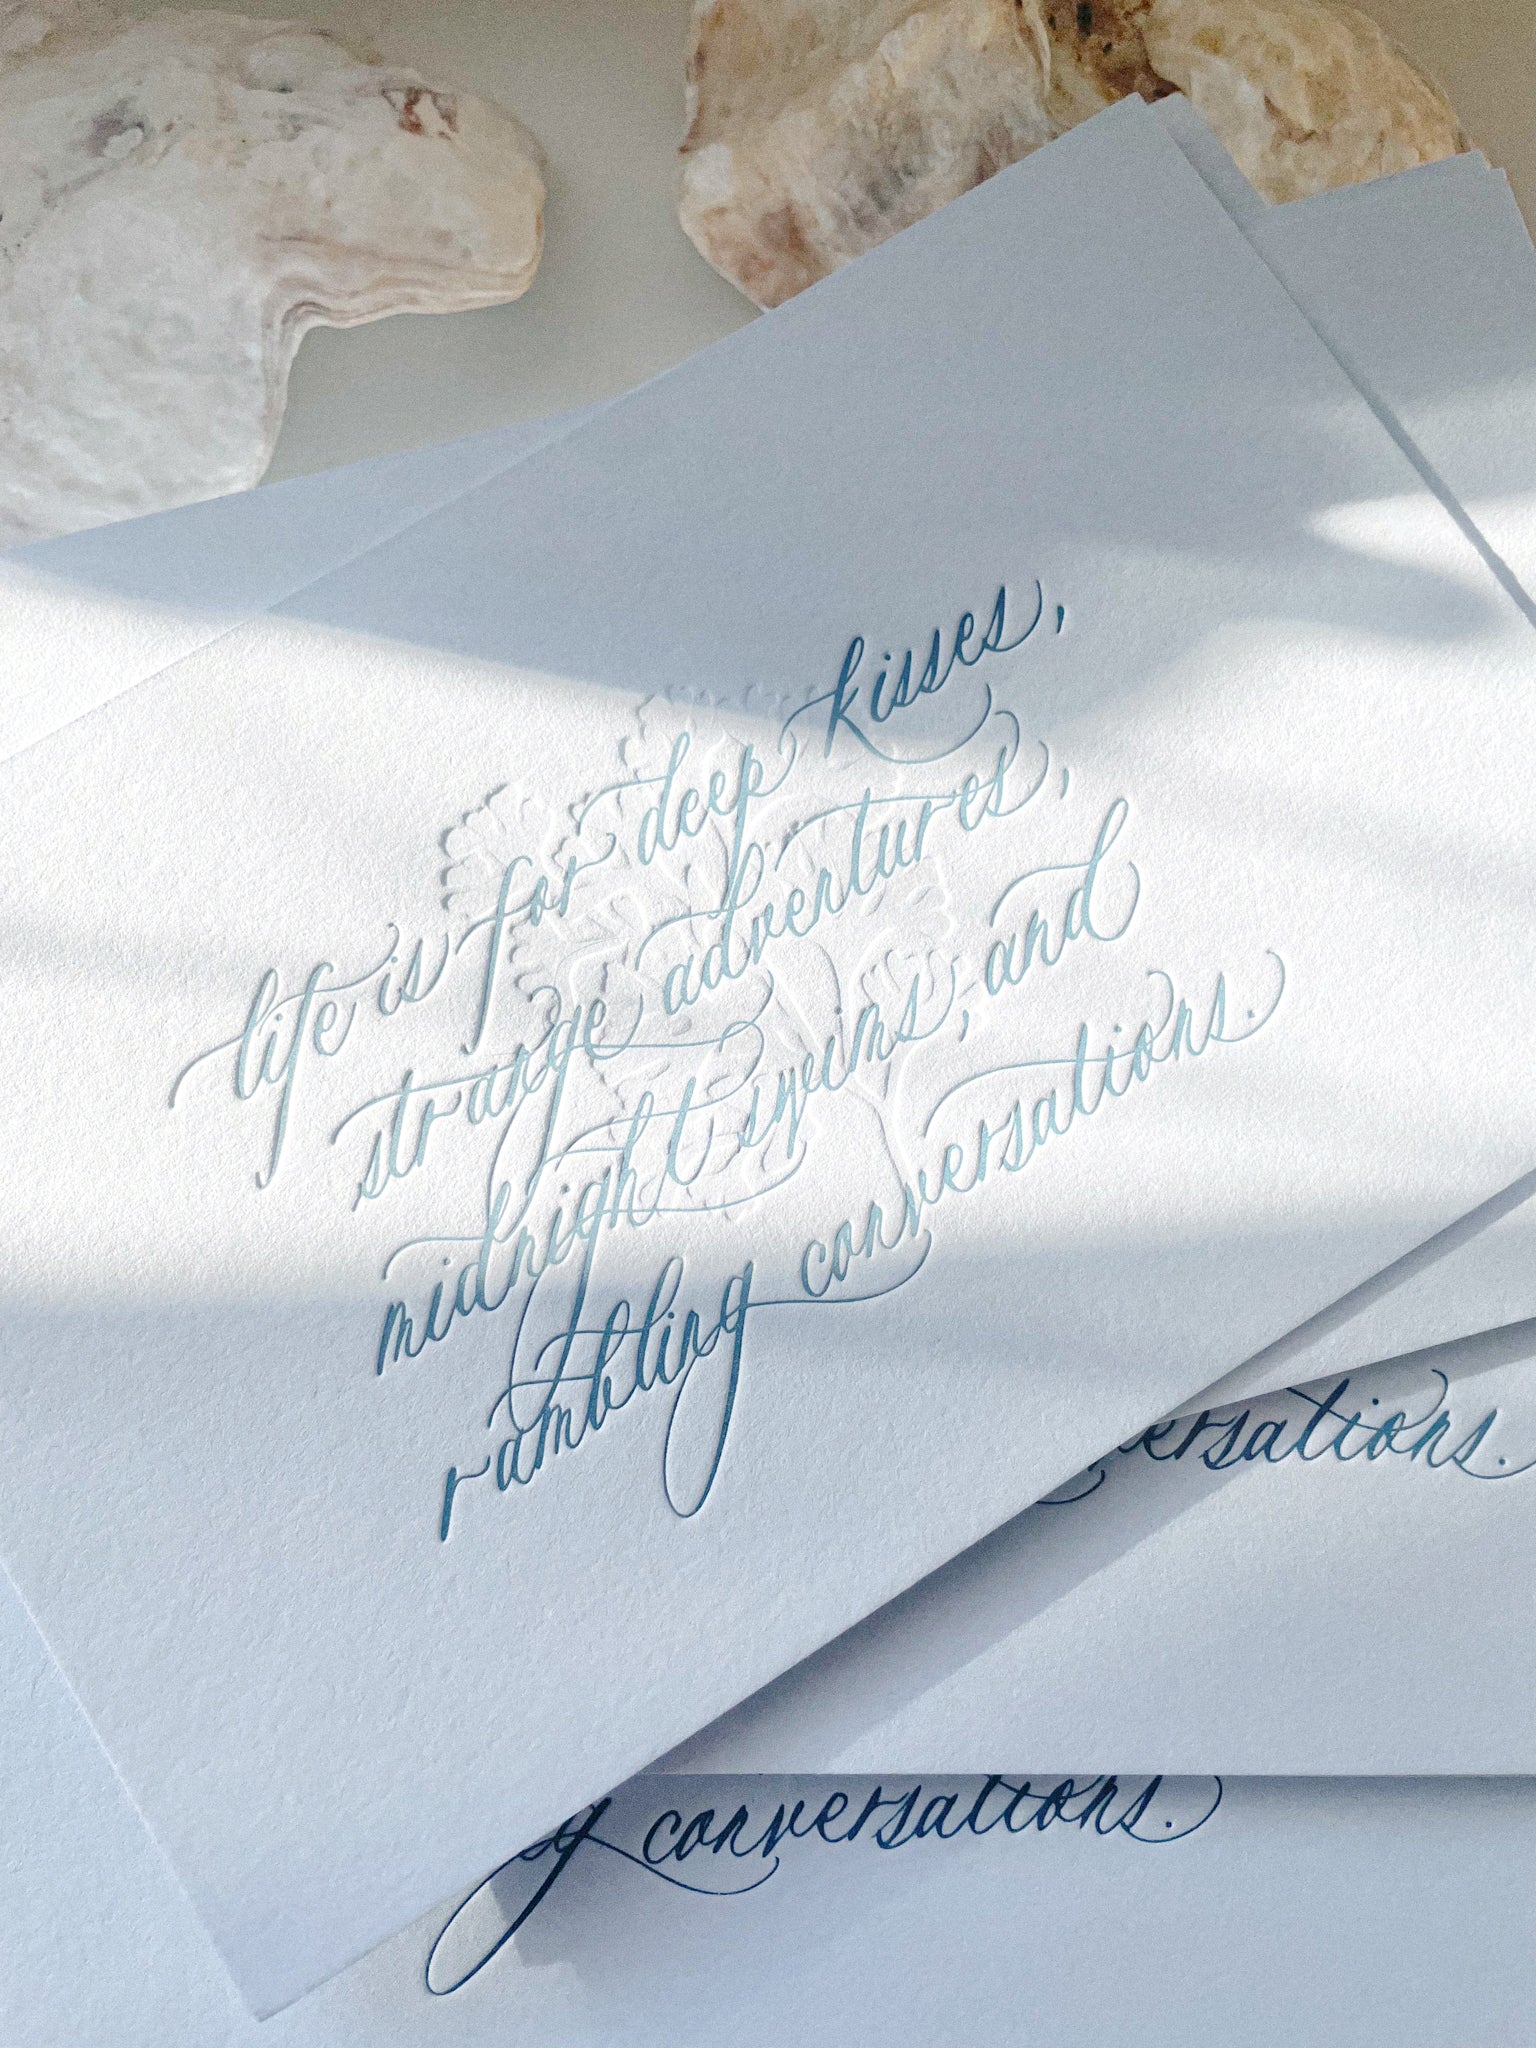 life is for deep kisses,
strange adventures,
midnight swims, and
rambling conversations.
ersations.
g conversations.